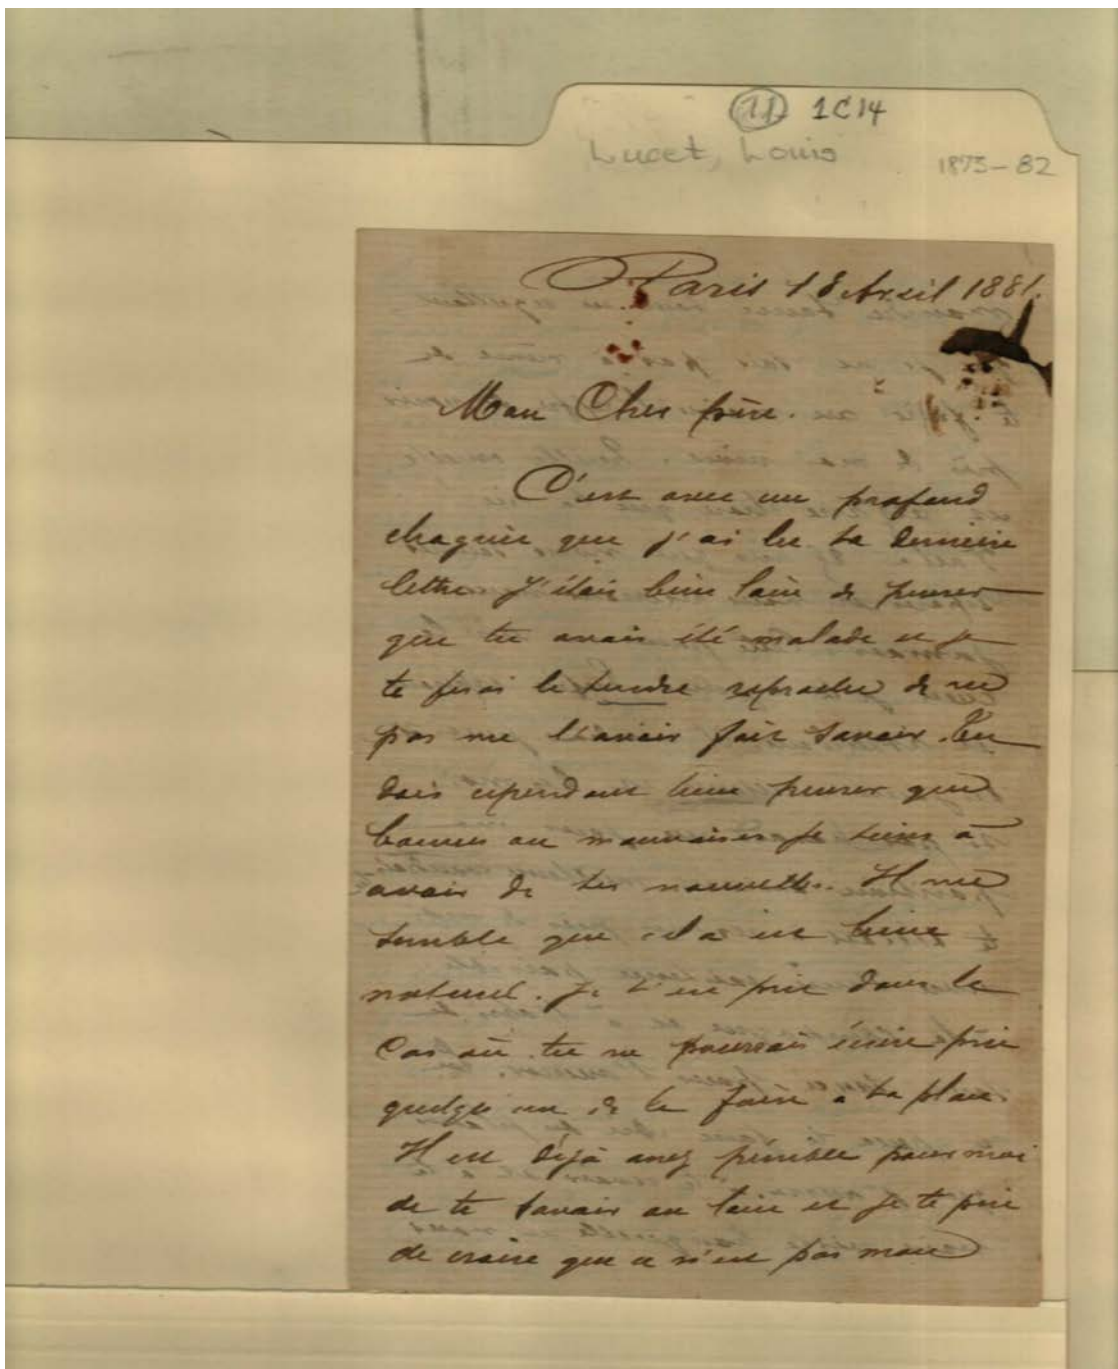 11 1C14
Lucet, Louis
1875-82
Paris 18 Avril 1881.
Mon Cher père.
C'est avec un profond
chagrin que j'ai lu ta dernière
lettre J'étais bien loin de penser
que tu avais été malade et je
te ferai le tendre reproche de ne
pas me l'avoir fait savoir. Tu
dois cependant bien penser que
bonnes ou mauvaises je tiens à
avoir de tes nouvelles. Il me
semble que cela est bien
naturel. Je t'en prie dans le
cas où tu ne pourrais écrire prie
quelqu'un de le faire à ta place.
Il est déjà assez pénible pour moi
de te savoir au loin et je te prie
de croire que ce n'est pas mon